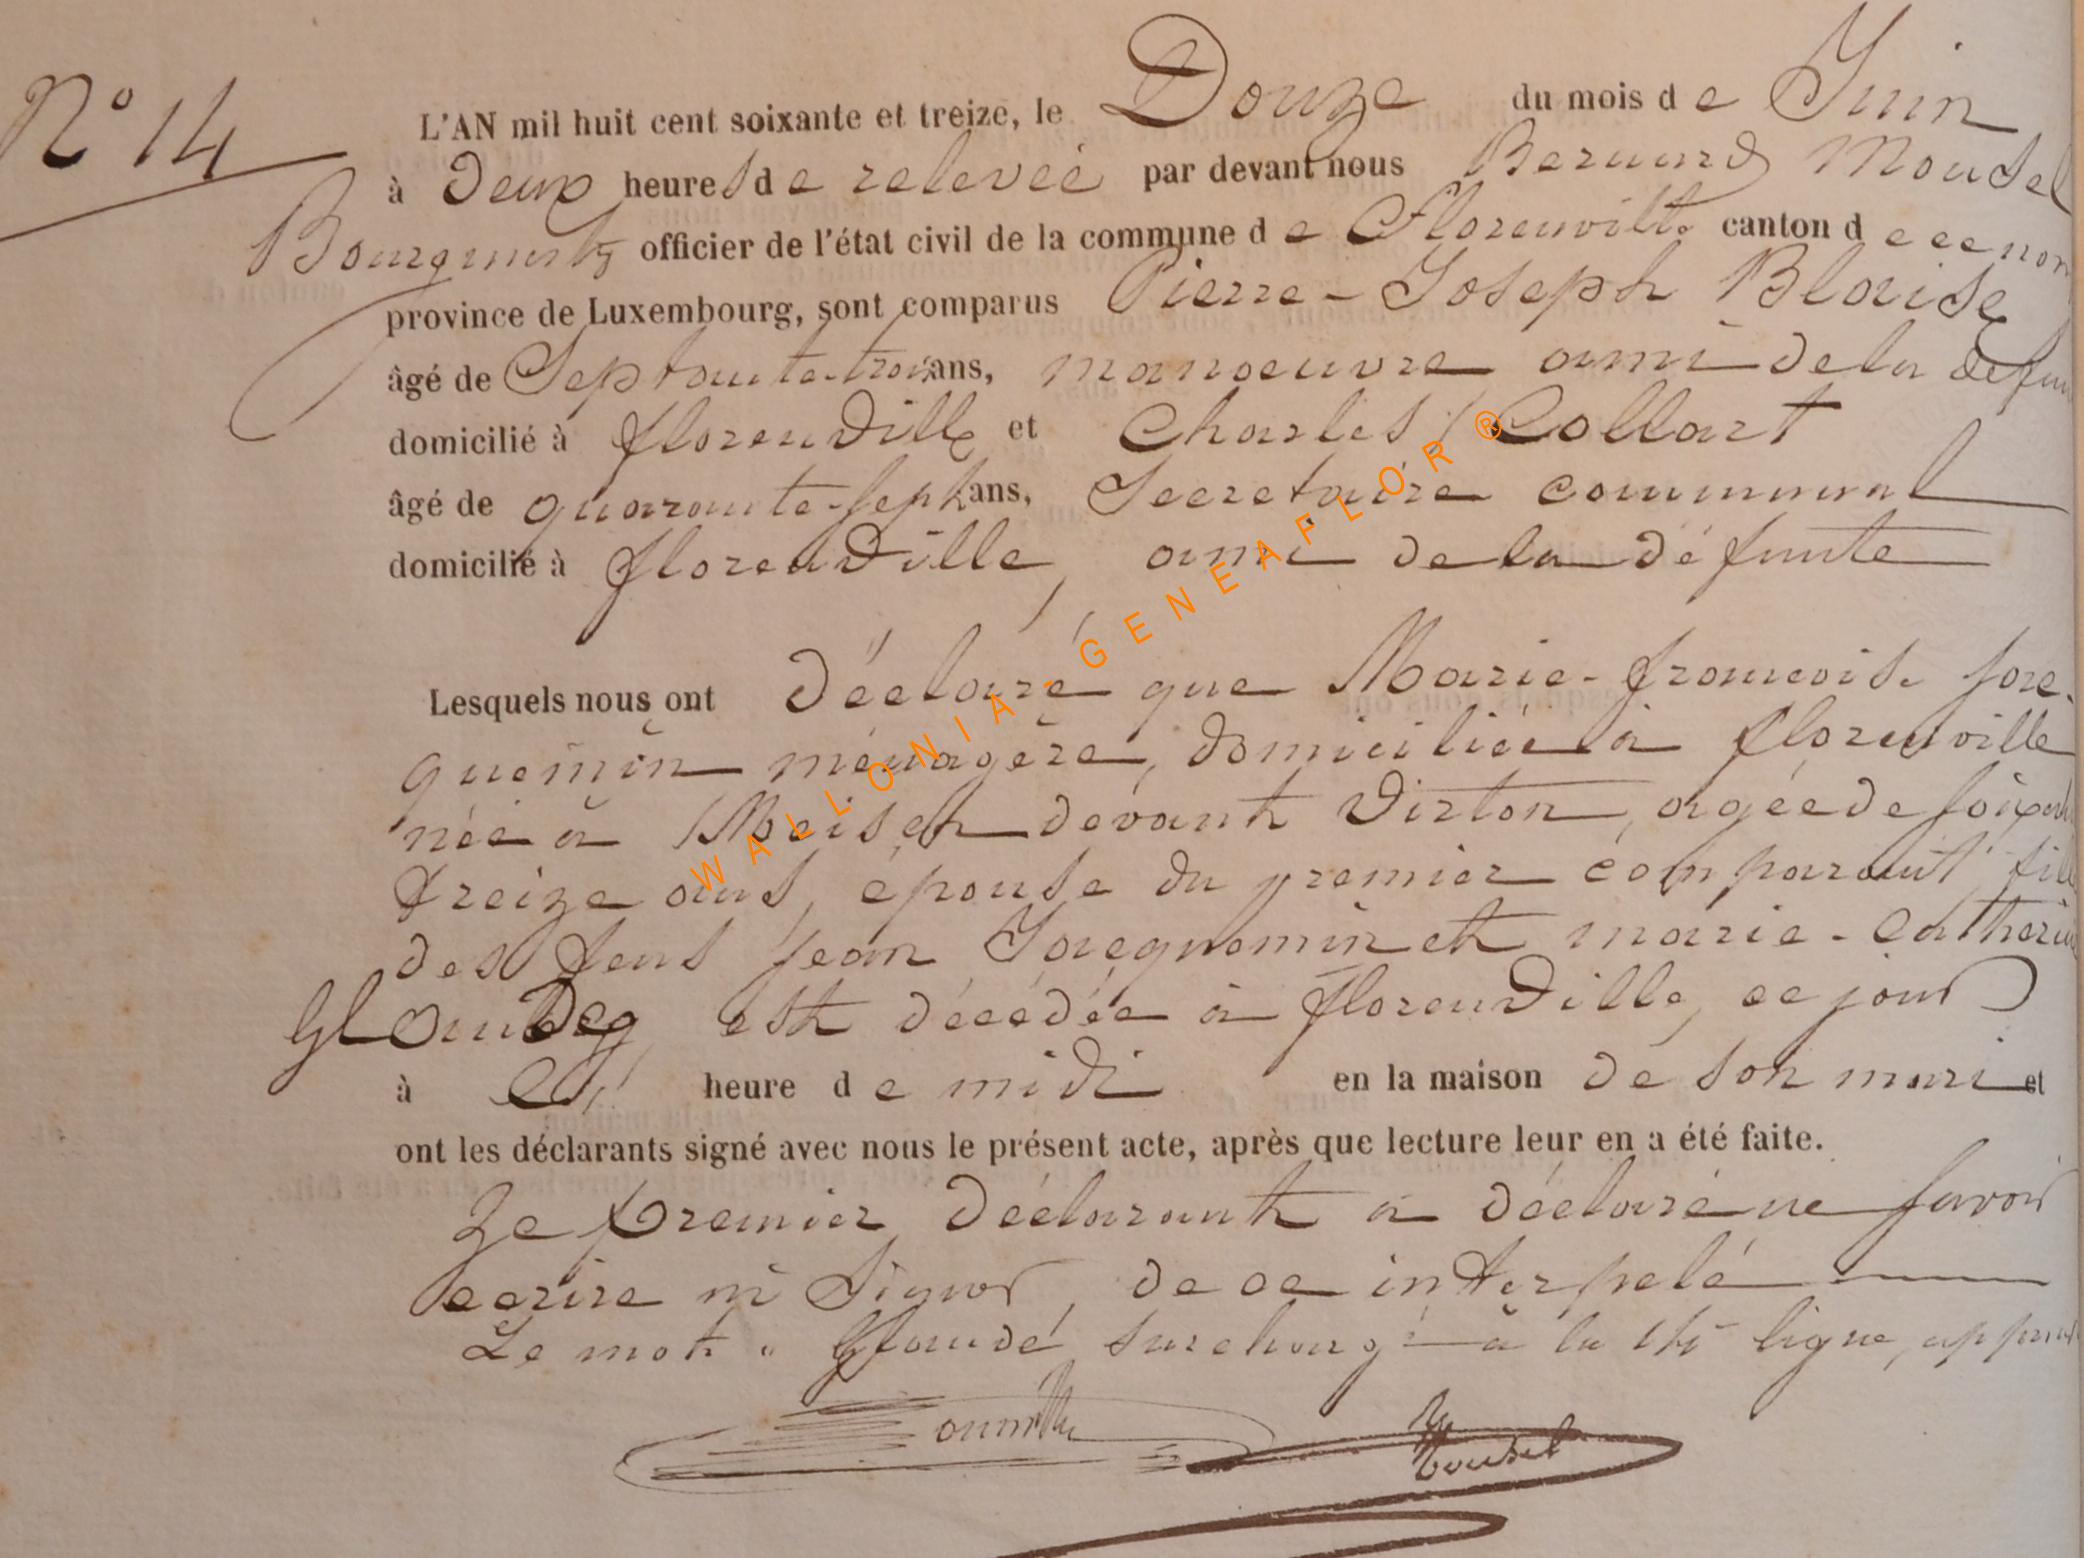 N° 14
L'AN mil huit cent soixante et treize, le Douze du mois de Juin
à Deux heures de relevée par devant nous Bernard Mousel
Bourgmestre officier de l'état civil de la commune de Florenville canton de ce nom
province de Luxembourg, sont comparus Pierre-Joseph Blaise
âgé de Septante-trois ans, manoeuvre ami de la
domicilié à florenville et Charles Collart
âgé de quarante-sept ans, Secretaire communal
domicilié à florenville, ami de la défunte
Lesquels nous ont Déclaré que Marie-francoise Jac-
quemin ménagère, domiciliée à florenville
née à Meix devant Virton, agée de
treize ans, épouse du premier comparant, fille
des feus Jean Jacquemin et marie-Catherine
est décédée à florenville, ce jour
à heure de midi en la maison de son mari et
ont les déclarants signé avec nous le présent acte, après que lecture leur en a été faite.
Le premier Déclarant a déclaré ne savoir
ecrire ni Signer, de ce interpelé
Le mot " surchargé à la ligne,
Mousel
WALLONIA-GENEAFLOR®